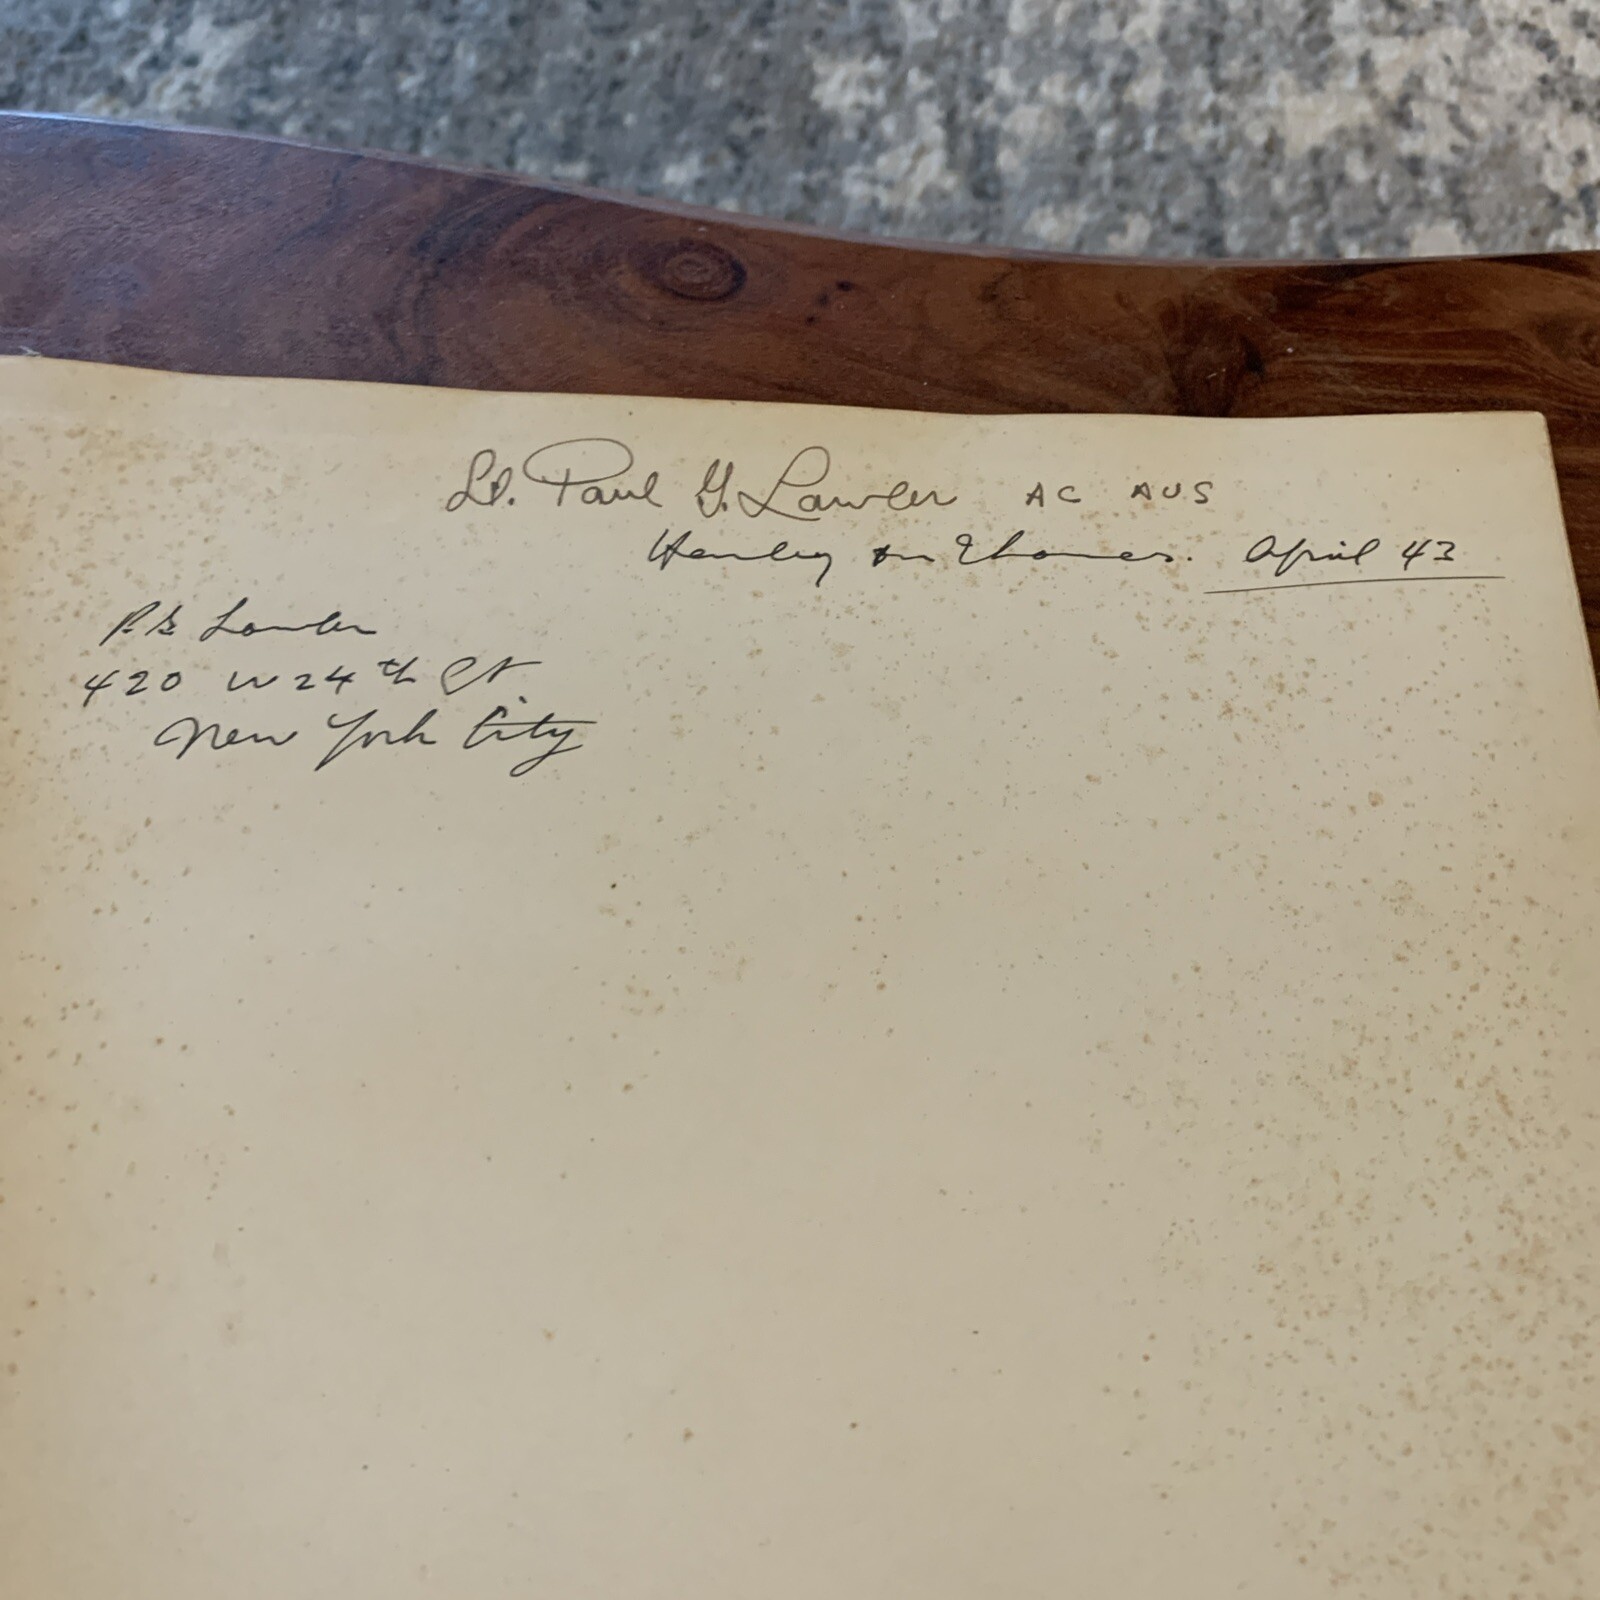 Lt. Paul G. Lawler AC AUS
Henley on Thames. April 43
P. G. Lawler
420 W 24th St
New York City